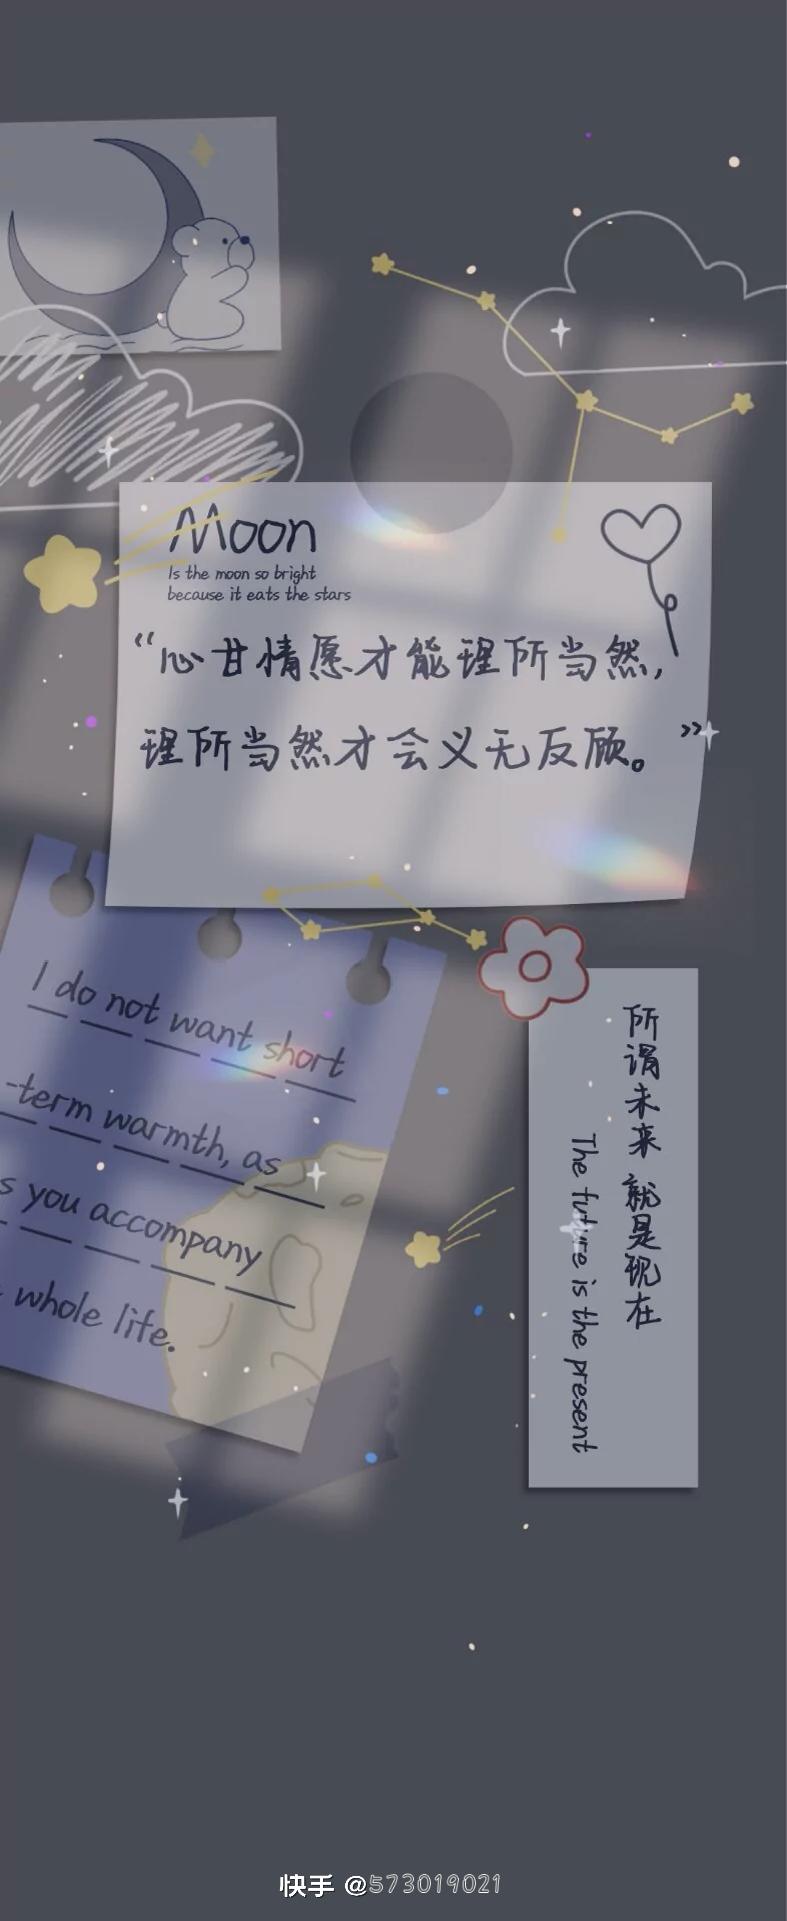 Moon
Is the moon so bright
because it eats the stars
“心甘情愿才能理所当然,
理所当然才会义无反顾。”
I do not want short
-term warmth, as
s you accompany
whole life.
所谓未来 就是现在
The future is the present
快手 @573019021